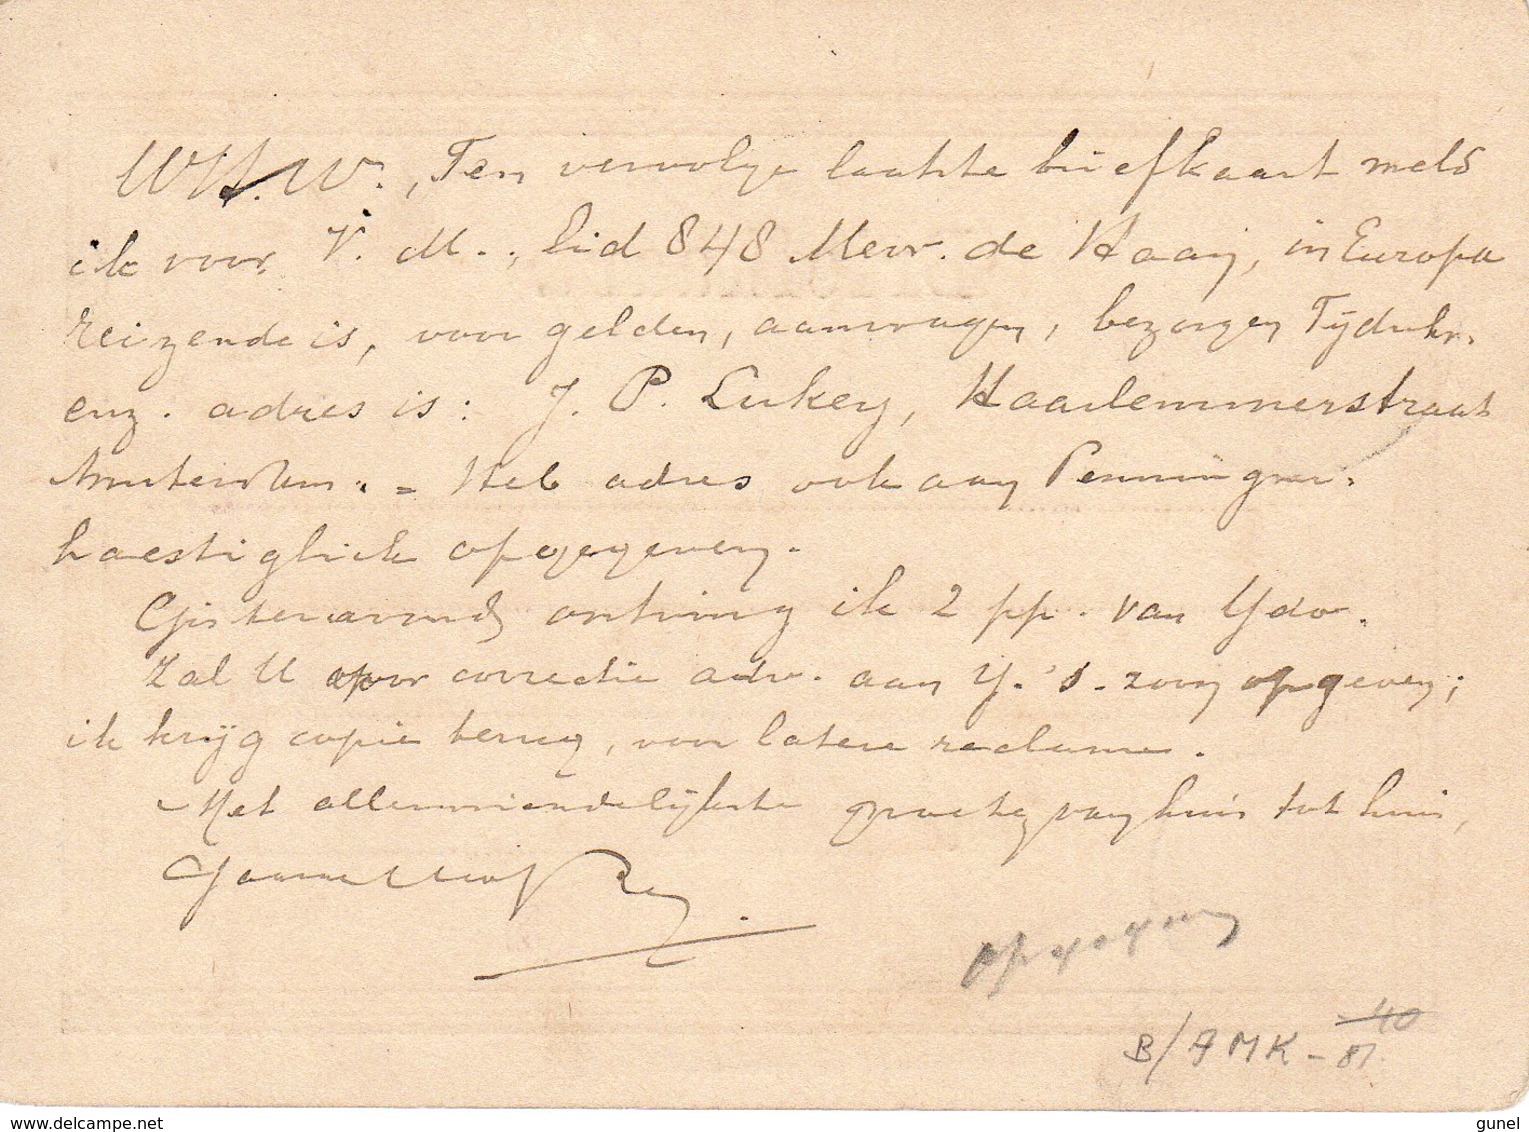 W.H.W., Ten vervolge laatste briefkaart meld
ik voor V. M., lid 848 Mevr. de Haan, in Europa
reizende is, voor gelden, aanvragen, bezorgen Tijdschr.
enz. adres is: J. P. Lukey, Haarlemmerstraat
Amsterdam. = Heb adres ook aan Penningmr.
haestiglick opgegeven.
Gisteravond ontving ik 2 pp. van Ydo.
Zal U voor correctie adv. aan Y.'s. zorg opgeven;
ik krijg copie terug, voor latere reclame.
Met allervriendelijkste groeten van huis tot huis,
opgegeven
B/AMK - 40
81.
www.delcampe.net
gunel